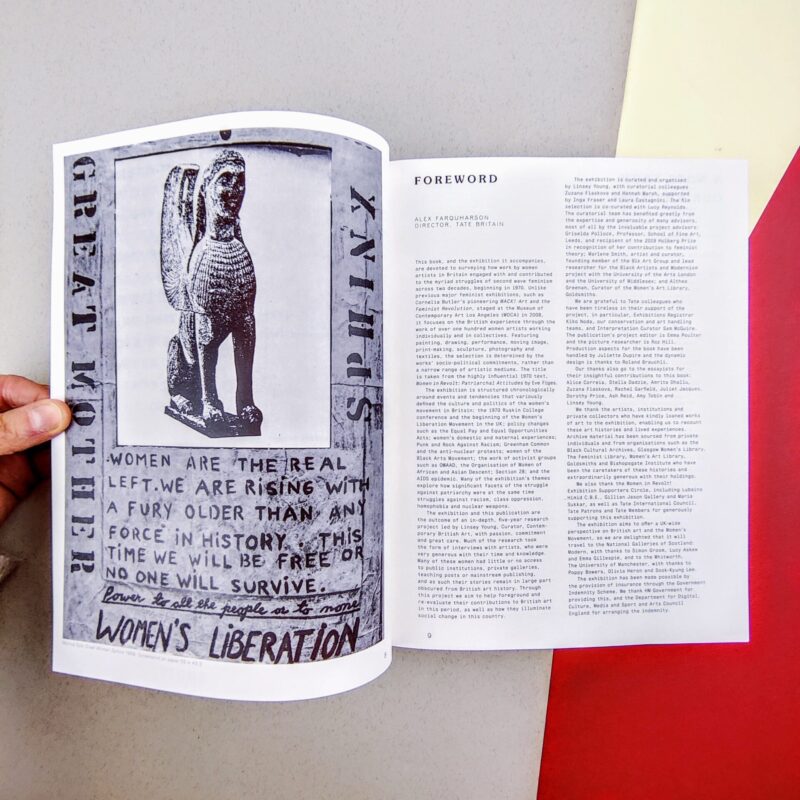 GREAT MOTHER
SPHINX
WOMEN ARE THE REAL
LEFT. WE ARE RISING WITH
A FURY OLDER THAN ANY
FORCE IN HISTORY. THIS
TIME WE WILL BE FREE OR
NO ONE WILL SURVIVE.
Power to all the people or to none
WOMEN'S LIBERATION
8
FOREWORD
ALEX FARQUHARSON
DIRECTOR, TATE BRITAIN
This book, and the exhibition it accompanies,
are devoted to surveying how work by women
artists in Britain engaged with and contributed
to the myriad struggles of second wave feminism
across two decades, beginning in 1970. Unlike
previous major feminist exhibitions, such as
Cornelia Butler's pioneering WACK! Art and the
Feminist Revolution, staged at the Museum of
Contemporary Art Los Angeles (MOCA) in 2008,
it focuses on the British experience through the
work of over one hundred women artists working
individually and in collectives. Featuring
painting, drawing, performance, moving image,
print-making, sculpture, photography and
textiles, the selection is determined by the
works' socio-political commitments, rather than
a narrow range of artistic mediums. The title
is taken from the highly influential 1970 text,
Women in Revolt: Patriarchal Attitudes by Eva Figes.
The exhibition is structured chronologically
around events and tendencies that variously
defined the culture and politics of the women's
movement in Britain: the 1970 Ruskin College
conference and the beginning of the Women's
Liberation Movement in the UK; policy changes
such as the Equal Pay and Equal Opportunities
Acts; women's domestic and maternal experiences;
Punk and Rock Against Racism; Greenham Common
and the anti-nuclear protests; women of the
Black Arts Movement; the work of activist groups
such as OWAAD, the Organisation of Women of
African and Asian Descent; Section 28; and the
AIDS epidemic. Many of the exhibition's themes
explore how significant facets of the struggle
against patriarchy were at the same time
struggles against racism, class oppression,
homophobia and nuclear weapons.
The exhibition and this publication are
the outcome of an in-depth, five-year research
project led by Linsey Young, Curator, Contem-
porary British Art, with passion, commitment
and great care. Much of the research took
the form of interviews with artists, who were
very generous with their time and knowledge.
Many of these women had little or no access
to public institutions, private galleries,
teaching posts or mainstream publishing,
and as such their stories remain in large part
obscured from British art history. Through
this project we aim to help foreground and
re-evaluate their contributions to British art
in this period, as well as how they illuminate
social change in this country.
9
The exhibition is curated and organised
by Linsey Young, with curatorial colleagues
Zuzana Flaskova and Hannah Marsh, supported
by Inga Fraser and Laura Castagnini. The film
selection is co-curated with Lucy Reynolds.
The curatorial team has benefited greatly from
the expertise and generosity of many advisors,
most of all by the invaluable project advisors:
Griselda Pollock, Professor, School of Fine Art,
Leeds, and recipient of the 2019 Holberg Prize
in recognition of her contribution to feminist
theory; Marlene Smith, artist and curator,
founding member of the Blk Art Group and lead
researcher for the Black Artists and Modernism
project with the University of the Arts London
and the University of Middlesex; and Althea
Greenan, Curator of the Women's Art Library,
Goldsmiths.
We are grateful to Tate colleagues who
have been tireless in their support of the
project, in particular, Exhibitions Registrar
Kiko Noda, our conservation and art handling
teams, and Interpretation Curator Gam McGuire.
The publication's project editor is Emma Poulter
and the picture researcher is Roz Hill.
Production aspects for the book have been
handled by Juliette Dupire and the dynamic
design is thanks to Roland Brauchli.
Our thanks also go to the essayists for
their insightful contributions to this book:
Alice Correia, Stella Dadzie, Amrita Dhallu,
Zuzana Flaskova, Rachel Garfield, Juliet Jacques,
Dorothy Price, Ash Reid, Amy Tobin and
Linsey Young.
We thank the artists, institutions and
private collectors who have kindly loaned works
of art to the exhibition, enabling us to recount
these art histories and lived experiences.
Archive material has been sourced from private
individuals and from organisations such as the
Black Cultural Archives, Glasgow Women's Library,
The Feminist Library, Women's Art Library,
Goldsmiths and Bishopsgate Institute who have
been the caretakers of these histories and
extraordinarily generous with their holdings.
We also thank the Women in Revolt!
Exhibition Supporters Circle, including Lubaina
Himid C.B.E., Gillian Jason Gallery and Maria
Sukkar, as well as Tate International Council,
Tate Patrons and Tate Members for generously
supporting this exhibition.
The exhibition aims to offer a UK-wide
perspective on British art and the Women's
Movement, so we are delighted that it will
travel to the National Galleries of Scotland:
Modern, with thanks to Simon Groom, Lucy Askew
and Emma Gillespie, and to the Whitworth,
The University of Manchester, with thanks to
Poppy Bowers, Olivia Heron and Sook-Kyung Lee.
The exhibition has been made possible by
the provision of insurance through the Government
Indemnity Scheme. We thank HM Government for
providing this, and the Department for Digital,
Culture, Media and Sport and Arts Council
England for arranging the indemnity.